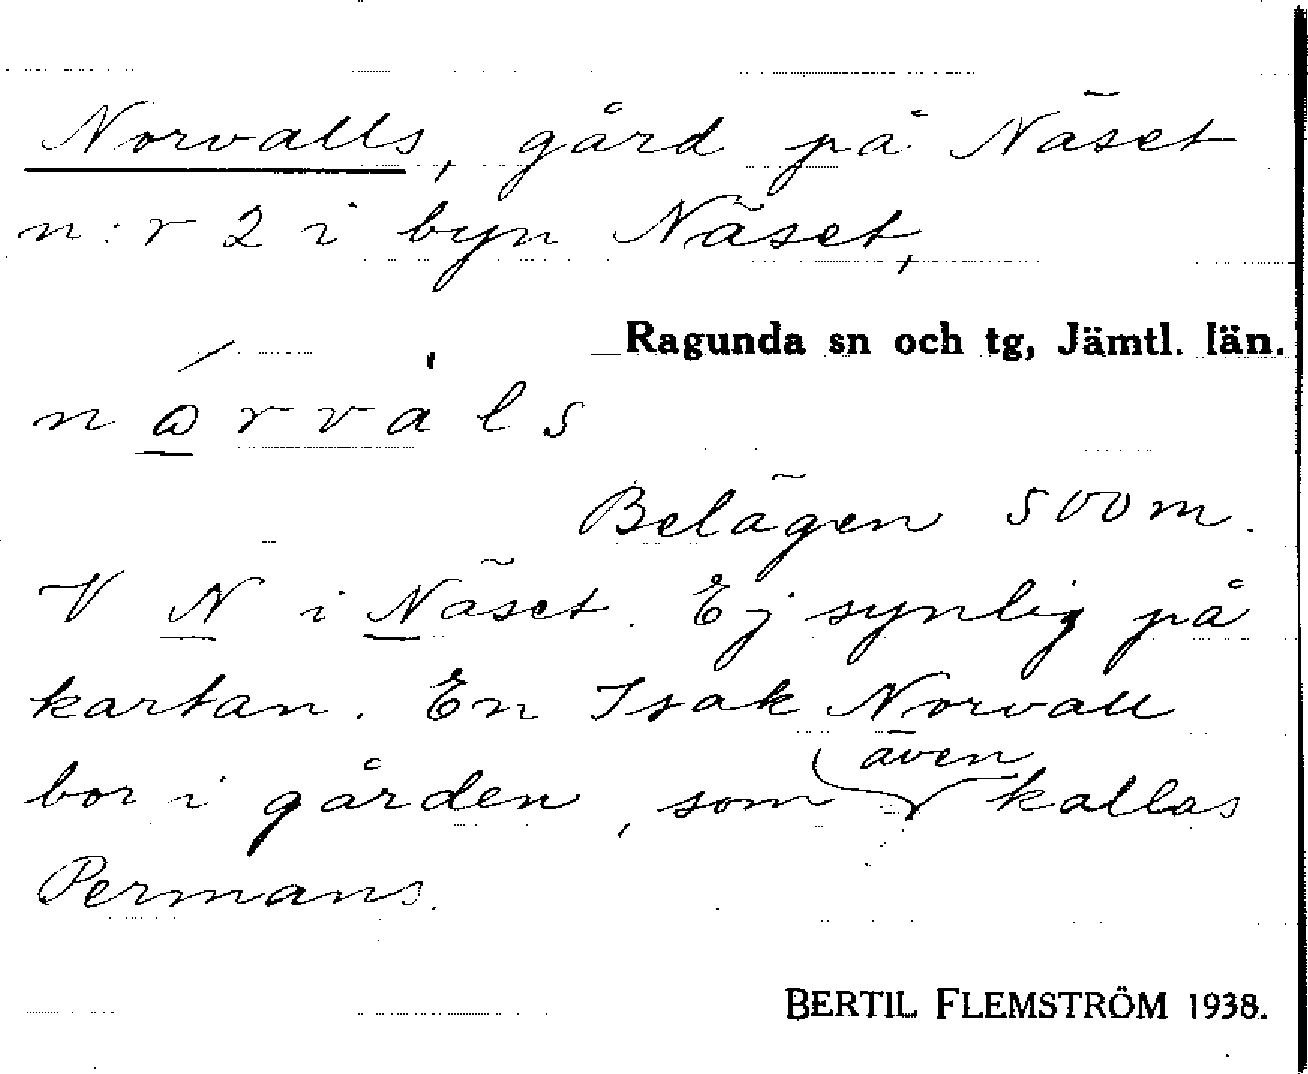 Norvalls, gård på Näset
n:r 2 i byn Näset,
Ragunda sn och tg, Jämtl. län.
Belägen 500 m.
V N i Näset. Ej synlig på
kartan. En Isak Norvall
bor i gården, som även kallas
Permans.
BERTIL FLEMSTRÖM 1938.